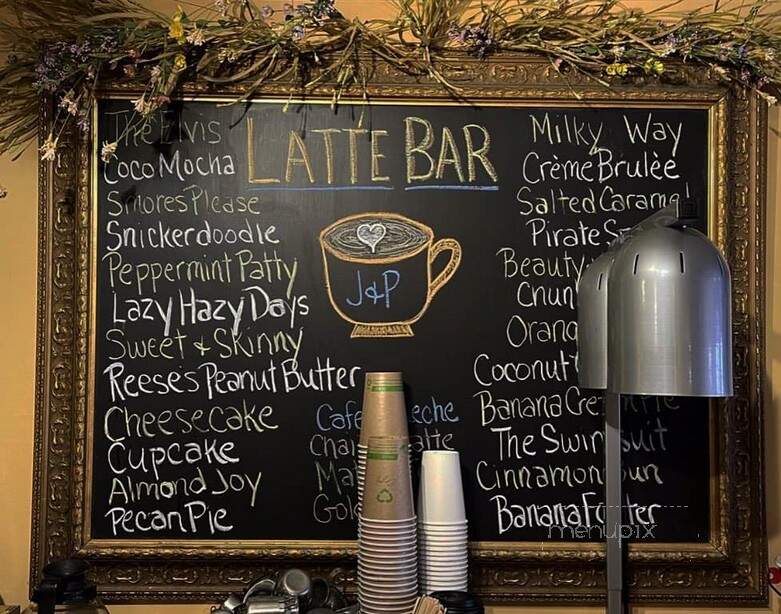 LATTE BAR
The Elvis
Coco Mocha
Smores Please
Snickerdoodle
Peppermint Patty
Lazy Hazy Days
Sweet & Skinny
Reese's Peanut Butter
Cheesecake
Cupcake
Almond Joy
Pecan Pie
J&P
Cafe
Milky Way
Crème Brulèe
Salted Caramel
Pirate
Beauty
Orang
Coconut
Banana
The Swimsuit
Cinnamon Bun
Banana Foster
menupix